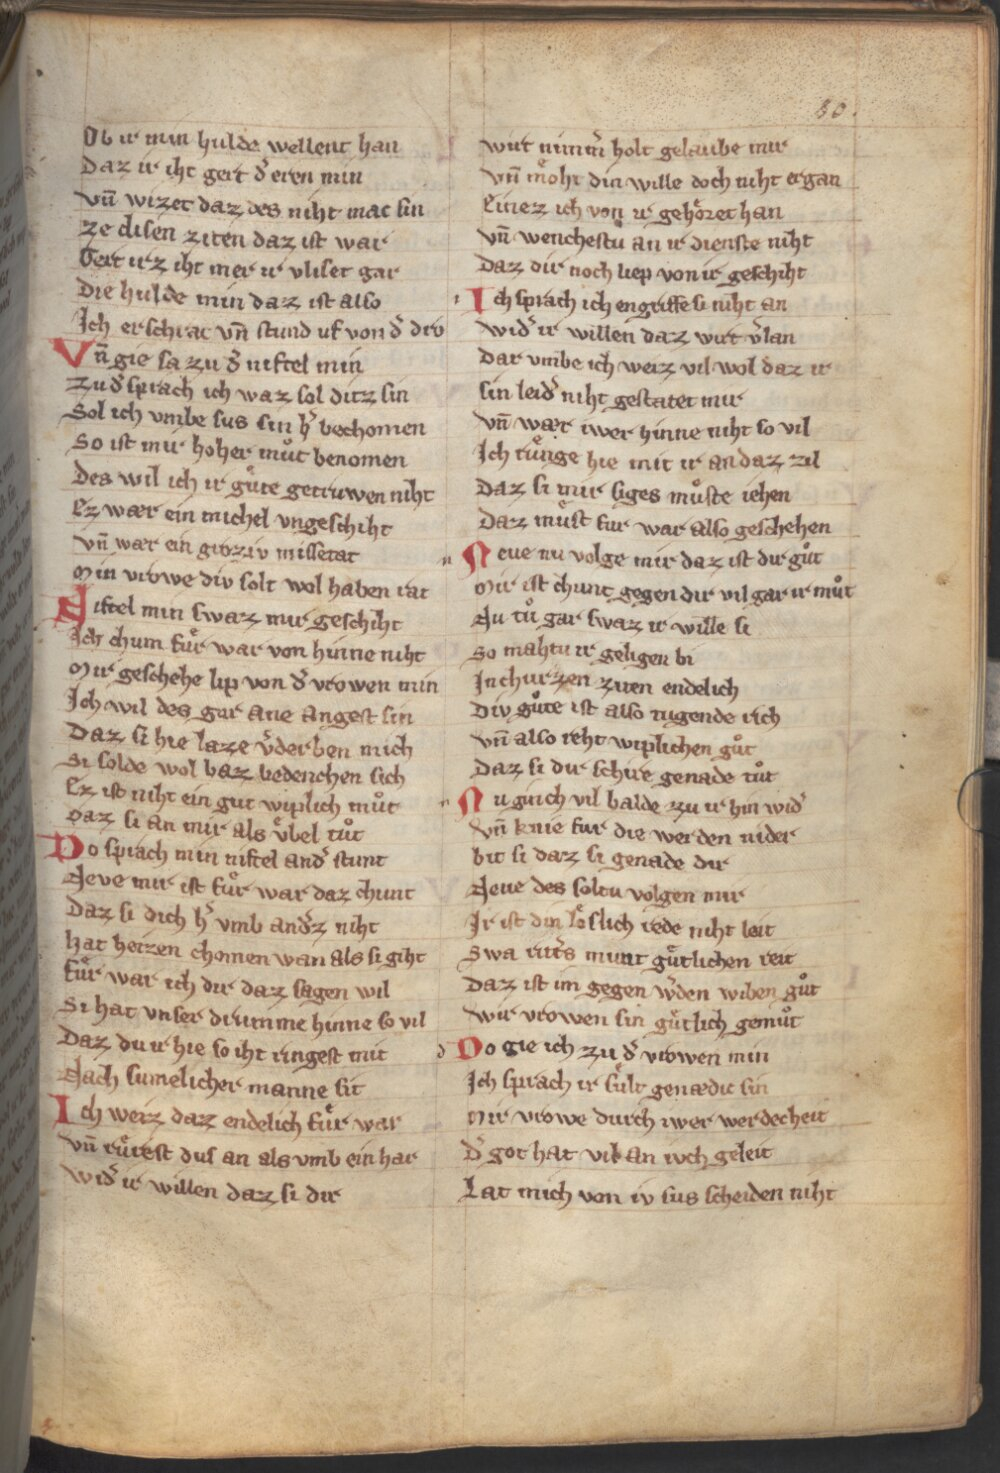 80.
Ob ir min hulde wellent han
Daz ir iht gert d͛ eren min
Vn̄ wizet daz des niht mac sin
Ze disen ziten daz ist war
Gert irz iht mer ir vliset gar
Die hulde min daz ist also
Ich erschrac vn̄ stund uf von d͛ dro
Vn̄ gie sa zu d͛ niftel min
Zu d͛ sprach ich waz sol ditz sin
Sol ich vmbe sus sin h͛ bechomen
So ist mir hoher můt benomen
Des wil ich ir gůte getruwen niht
Ez wær ein michel vngeschiht
Vn̄ wær ein groziv missetat
Min vrowe div solt wol haben rat
Niftel min swaz mir geschiht
Ich chum fuͤr war von hinne niht
Mir geschehe lip von d͛ vrowen min
Ich wil des gar ane angest sin
Daz si hie laze v͛derben mich
Si solde wol baz bedenchen sich
Ez ist niht ein gut wiplich můt
Daz si an mir als vͤbel tůt
Do sprach min niftel and͛ stunt
Neve mir ist fuͤr war daz chunt
Daz si dich h͛ vmb and͛z niht
Hat heizen chomen wan als si giht
Fuͤr war ich dir daz sagen wil
Si hat vnser drumme hinne so vil
Daz du ir hie so iht ringest mit
Nach sumelicher manne sit
Ich weiz daz endelich fuͤr war
Vn̄ ruͤrest dus an als vmb ein har
Wid͛ ir willen daz si dir
Wirt nimm͛ holt gelaube mir
Vn̄ moͤht din wille doch niht ergan
Einez ich von ir gehoͤret han
Vn̄ wenchestu an ir dienste niht
Daz dir noch liep von ir geschiht
Ich sprach ich engriffe si niht an
Wid͛ ir willen daz wirt v͛lan
Dar vmbe ich weiz vil wol daz ir
Sin leid͛ niht gestatet mir
Vn̄ wær iwer hinne niht so vil
Ich ruͤnge hie mit ir an daz zil
Daz si mir siges můste iehen
Daz můst fur war also geschehen
Neve nu volge mir daz ist dir gůt
Mir ist chunt gegen dir vil gar ir můt
Nu tů gar swaz ir wille si
So mahtu ir geligen bi
In churzen ziten endelich
Div gůte ist also tugende rich
Vn̄ also reht wiplichen gůt
Daz si dir schire genade tůt
Nu ginch vil balde zu ir hin wid͛
Vn̄ knie fur die werden nider
Bit si daz si genade dir
Neve des soltu volgen mir
Ir ist din loͤslich rede niht leit
Swa rit͛s munt guͤtlichen reit
Daz ist im gegen w͛den wiben gůt
Wir vrowen sin guͤtlich gemůt
Do gie ich zu d͛ vrowen min
Ich sprach ir suͤlt genædic sin
Mir vrowe durch iwer werdecheit
D͛ got hat vil an iuch geleit
Lat mich von iv sus scheiden niht